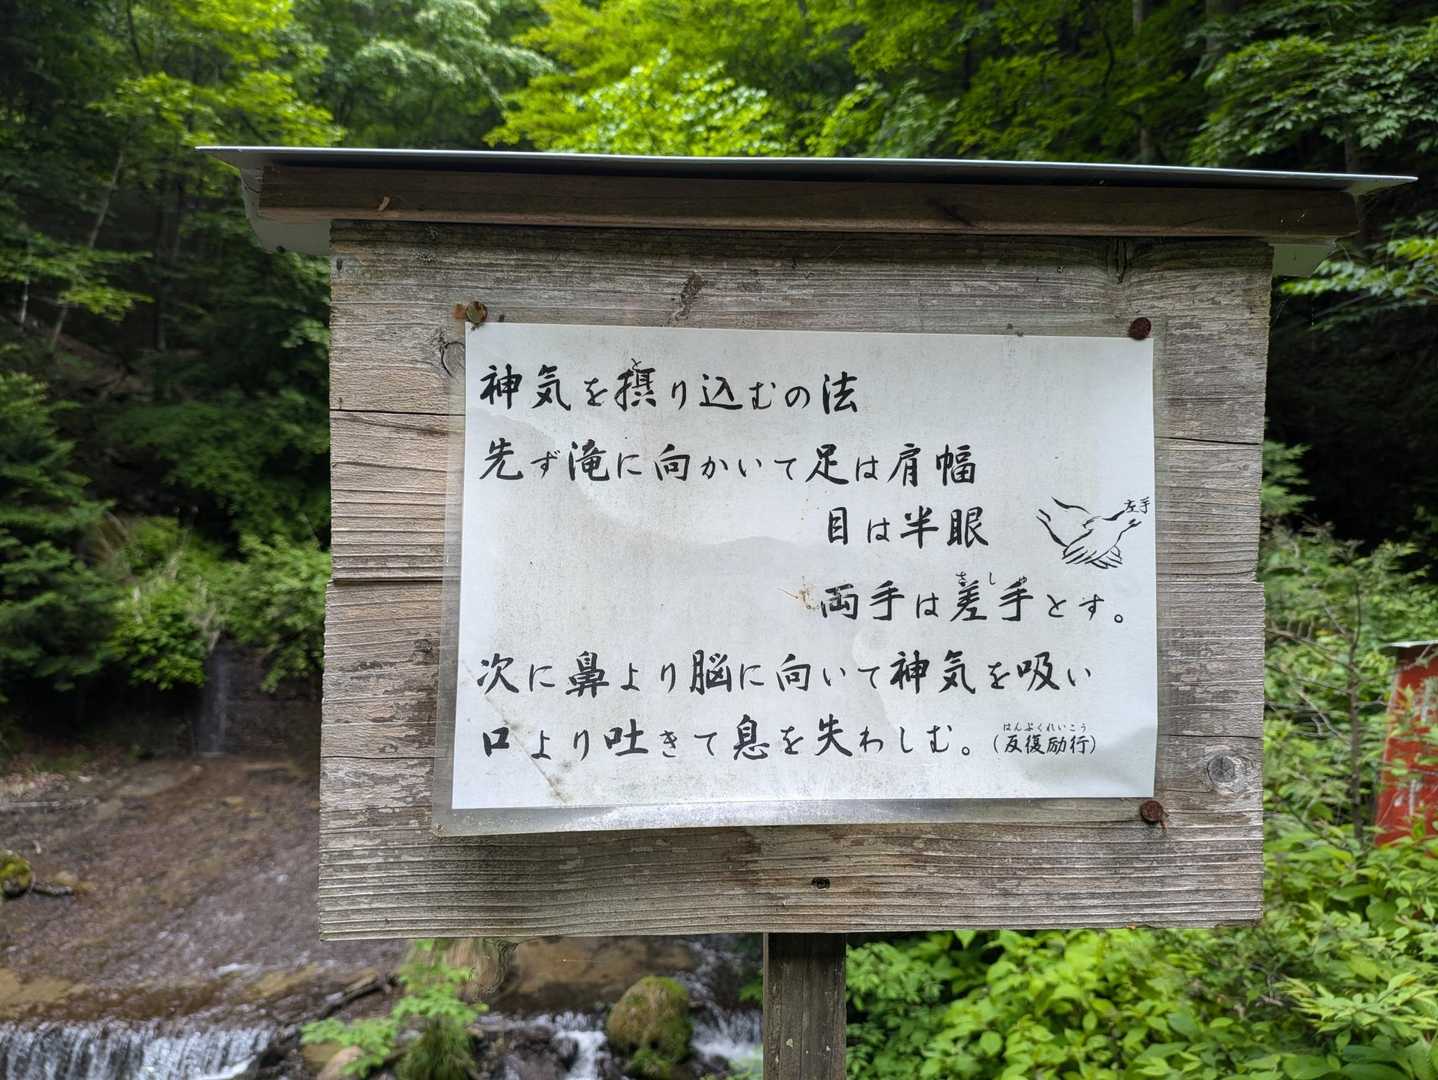 神気を摂り込むの法
先ず滝に向かいて足は肩幅
目は半眼
左手
両手は差手とす。
次に鼻より脳に向いて神気を吸い
口より吐きて息を失わしむ。(反復励行)